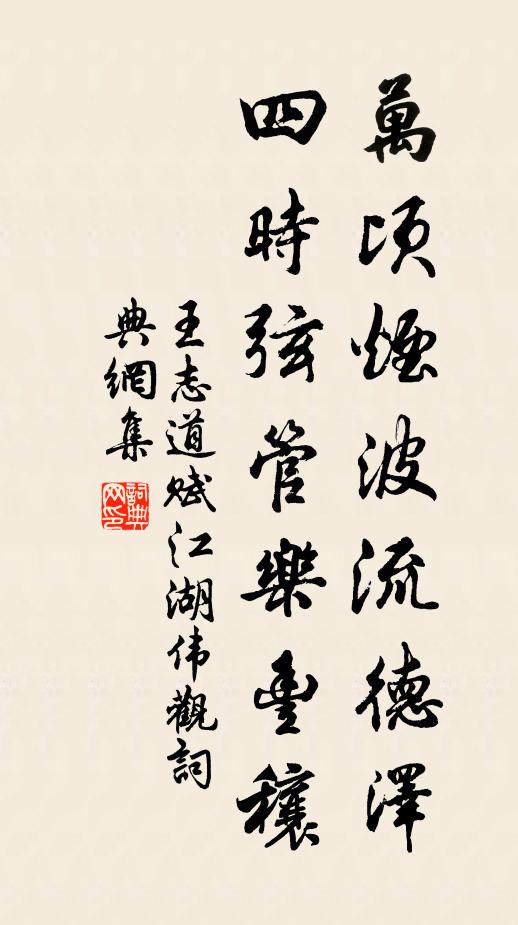 萬頃煙波流德澤
四時弦管樂豐穰
王志道賦江湖伟觀詞
典網集
詞典
网印